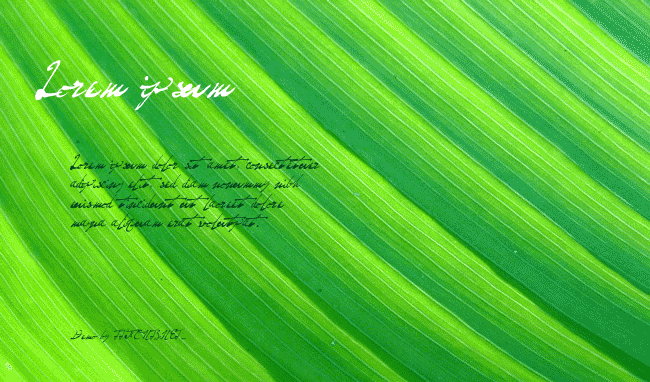 Lorem ipsum
Lorem ipsum dolor sit amet, consectetuer
adipiscing elit, sed diam nonummy nibh
euismod tincidunt ut laoreet dolore
magna aliquam erat volutpat.
Demo by